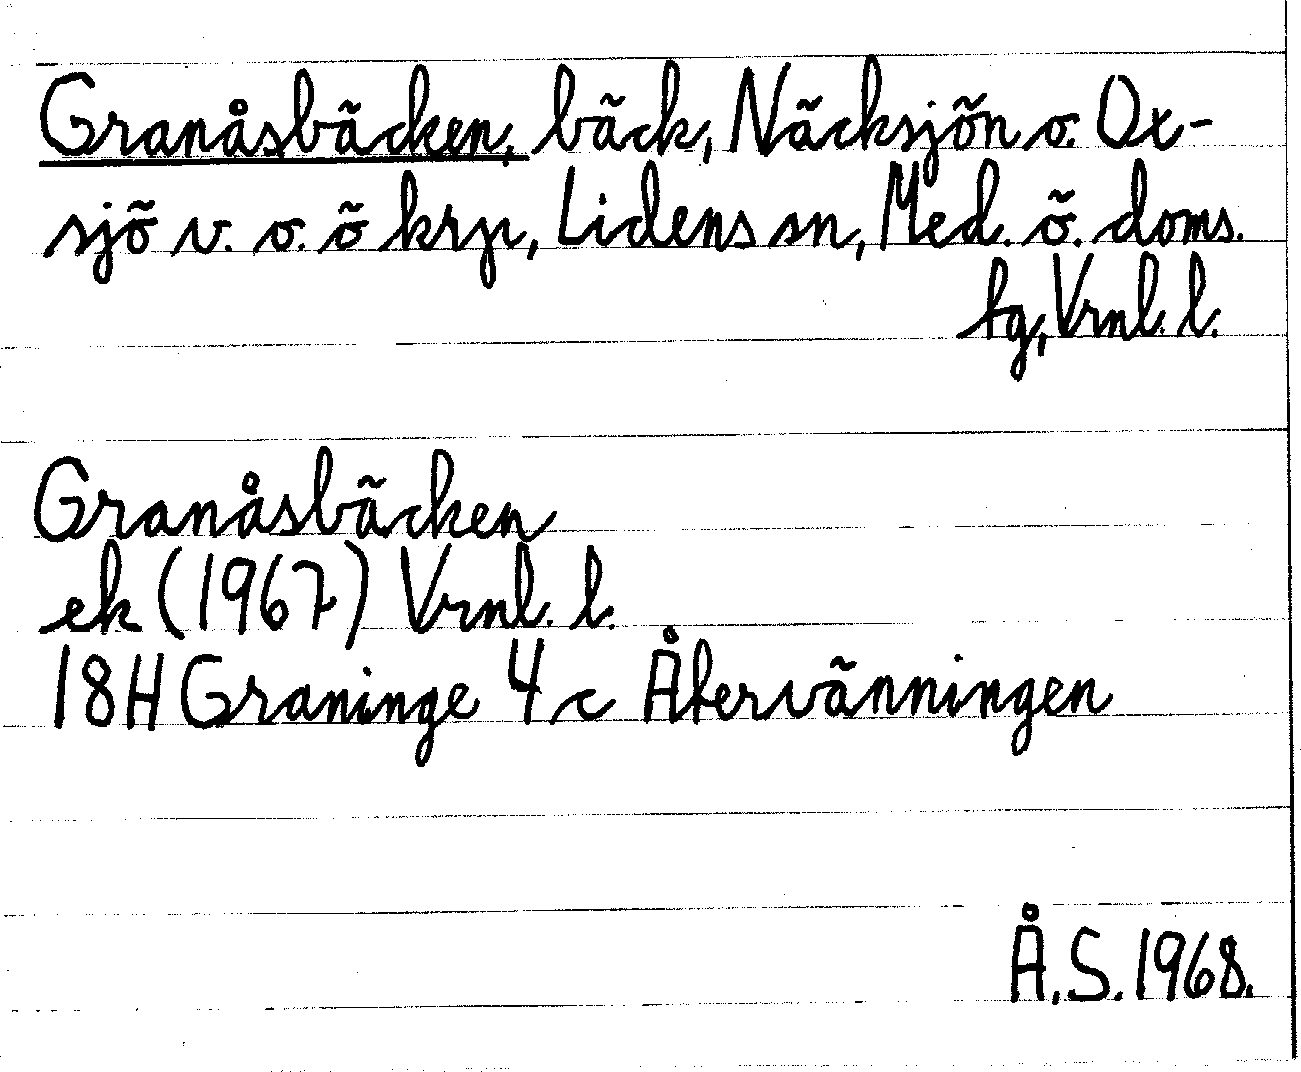 Granåsbäcken, bäck, Näcksjön o. Ox-
sjö v. o. ö krp, Lidens sn, Med. ö. doms.
tg, Vrnl. l.
Granåsbäcken
ek (1967) Vrnl. l.
18H Graninge 4 c Återvänningen
Å.S. 1968.